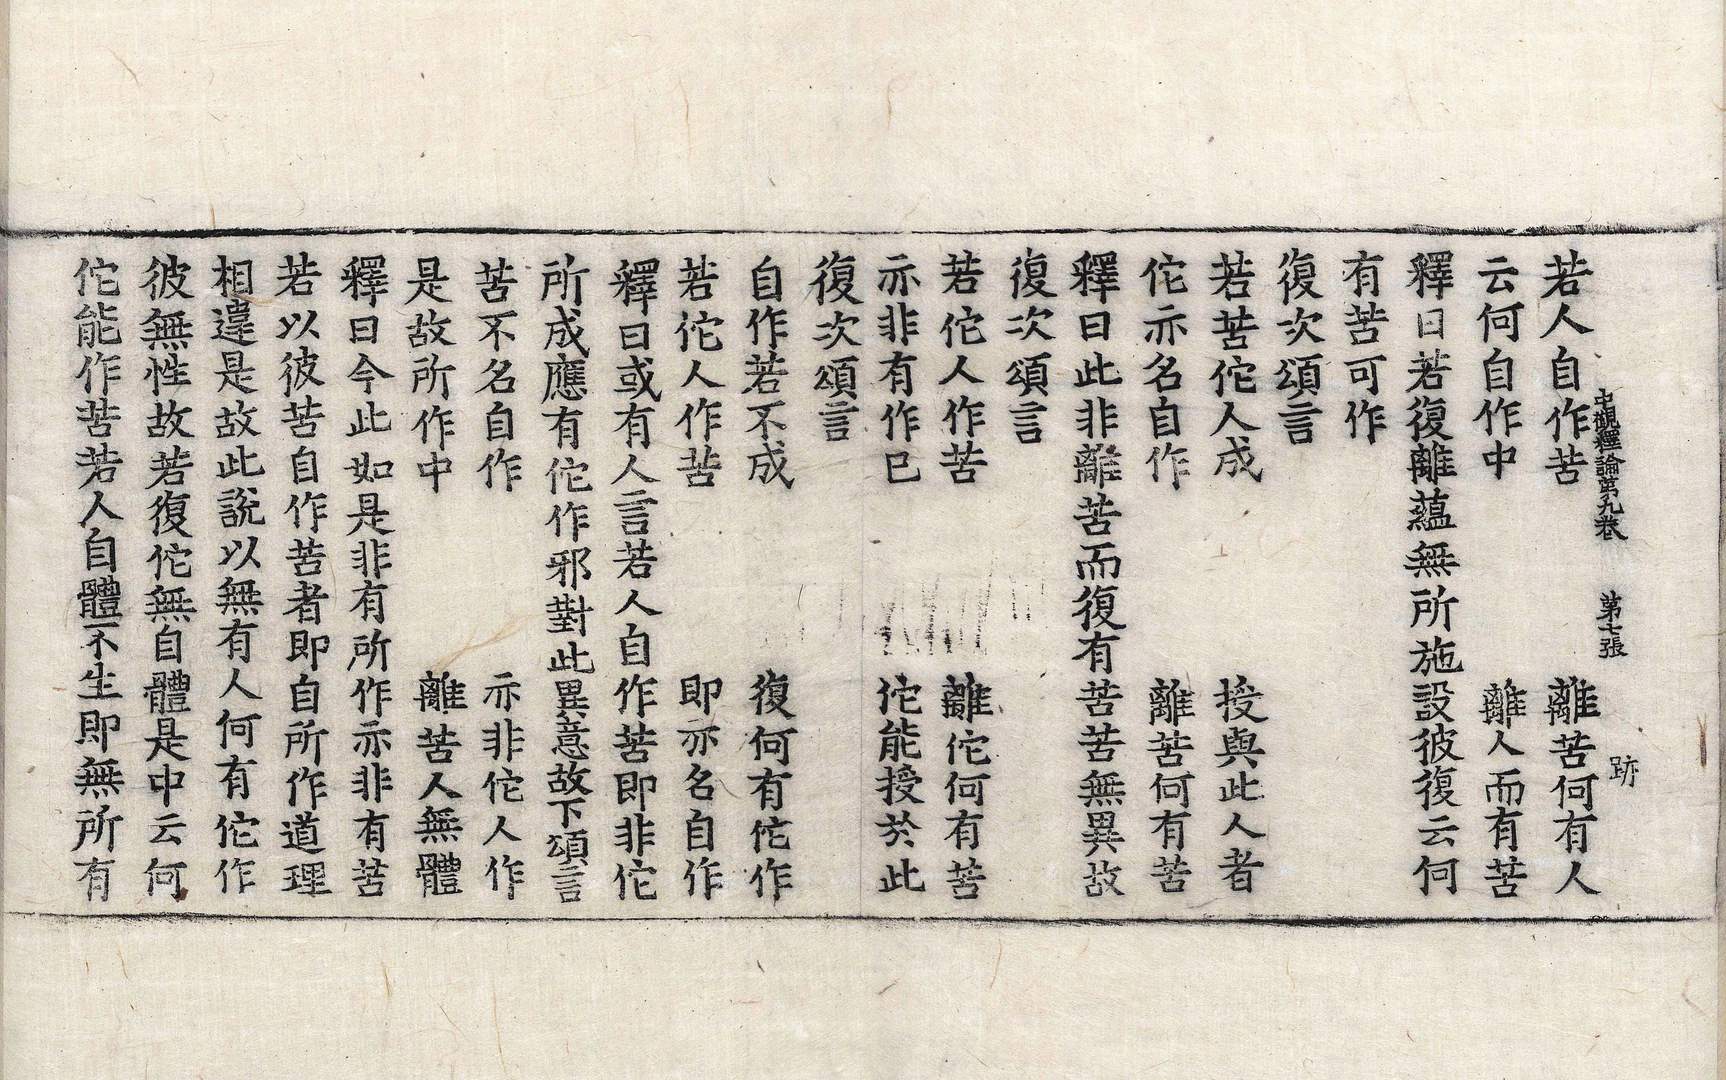 中觀釋論第九卷　第七張　跡
若人自作苦　離苦何有人
云何自作中　離人而有苦
釋曰若復離蘊無所施設彼復云何
有苦可作
復次頌言
若苦佗人成　授與此人者
佗亦名自作　離苦何有苦
釋曰此非離苦而復有苦苦無異故
復次頌言
若佗人作苦　離佗何有苦
亦非有作已　佗能授於此
復次頌言
自作若不成　復何有佗作
若佗人作苦　即亦名自作
釋曰或有人言若人自作苦即非佗
所成應有佗作邪對此異意故下頌言
苦不名自作　亦非佗人作
是故所作中　離苦人無體
釋曰今此如是非有所作亦非有苦
若以彼苦自作苦者即自所作道理
相違是故此說以無有人何有佗作
彼無性故若復佗無自體是中云何
佗能作苦若人自體不生即無所有